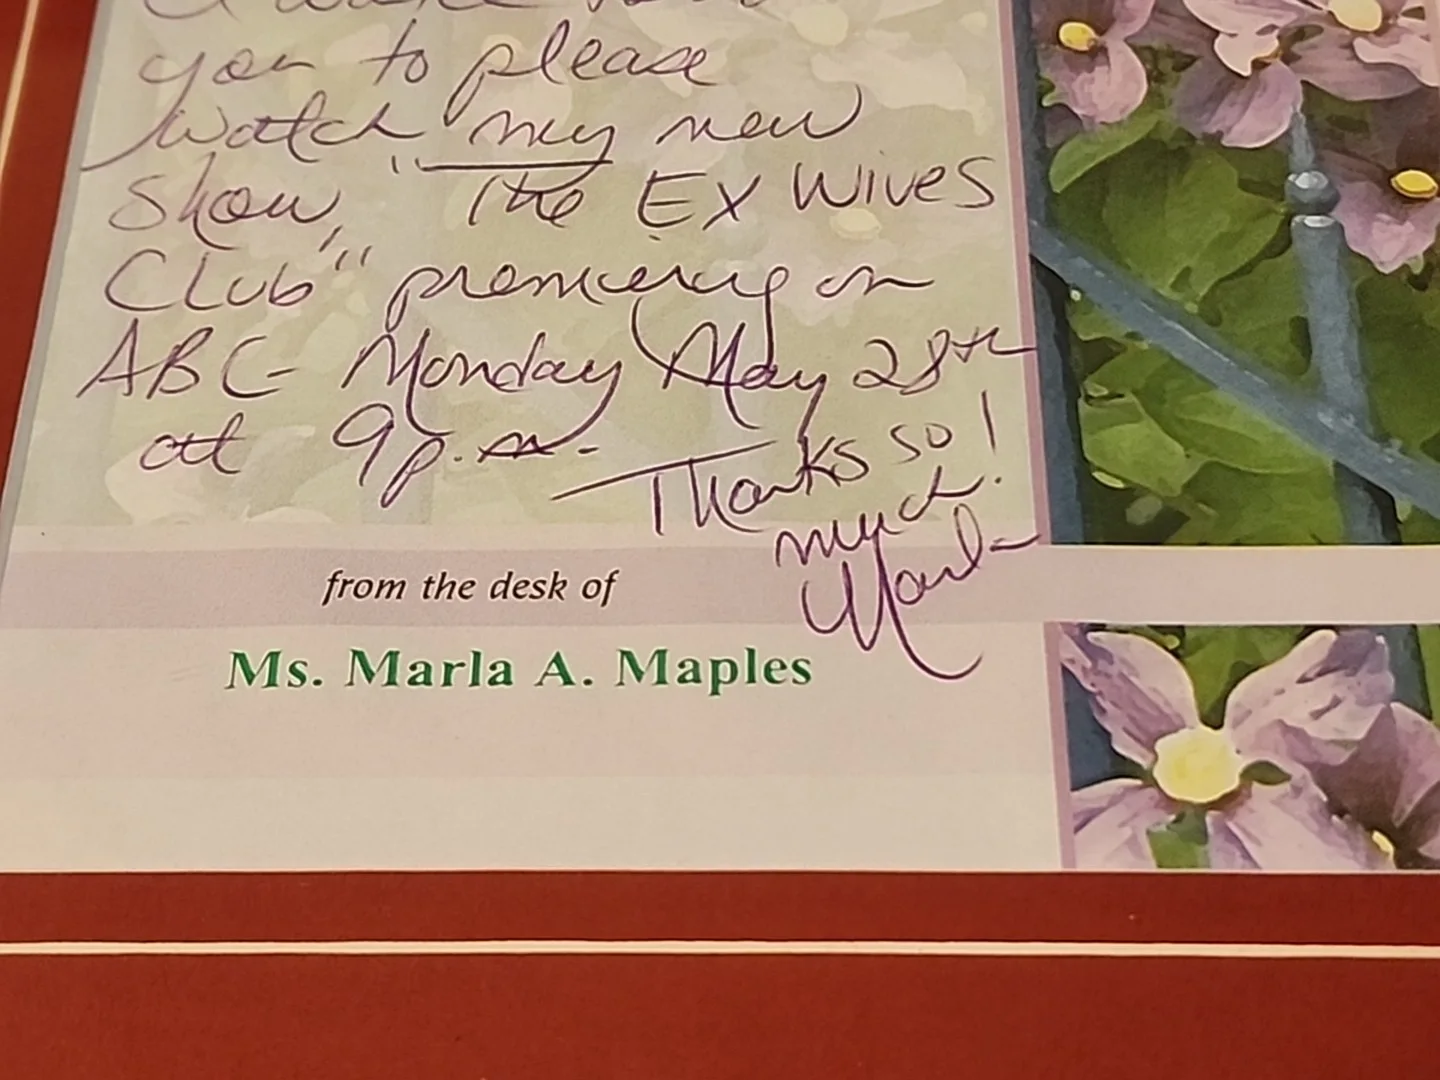 you to please
watch my new
show, "The Ex Wives
Club" premiering on
ABC - Monday May 28th
at 9p.m.
Thanks so
much!
Marla
from the desk of
Ms. Marla A. Maples